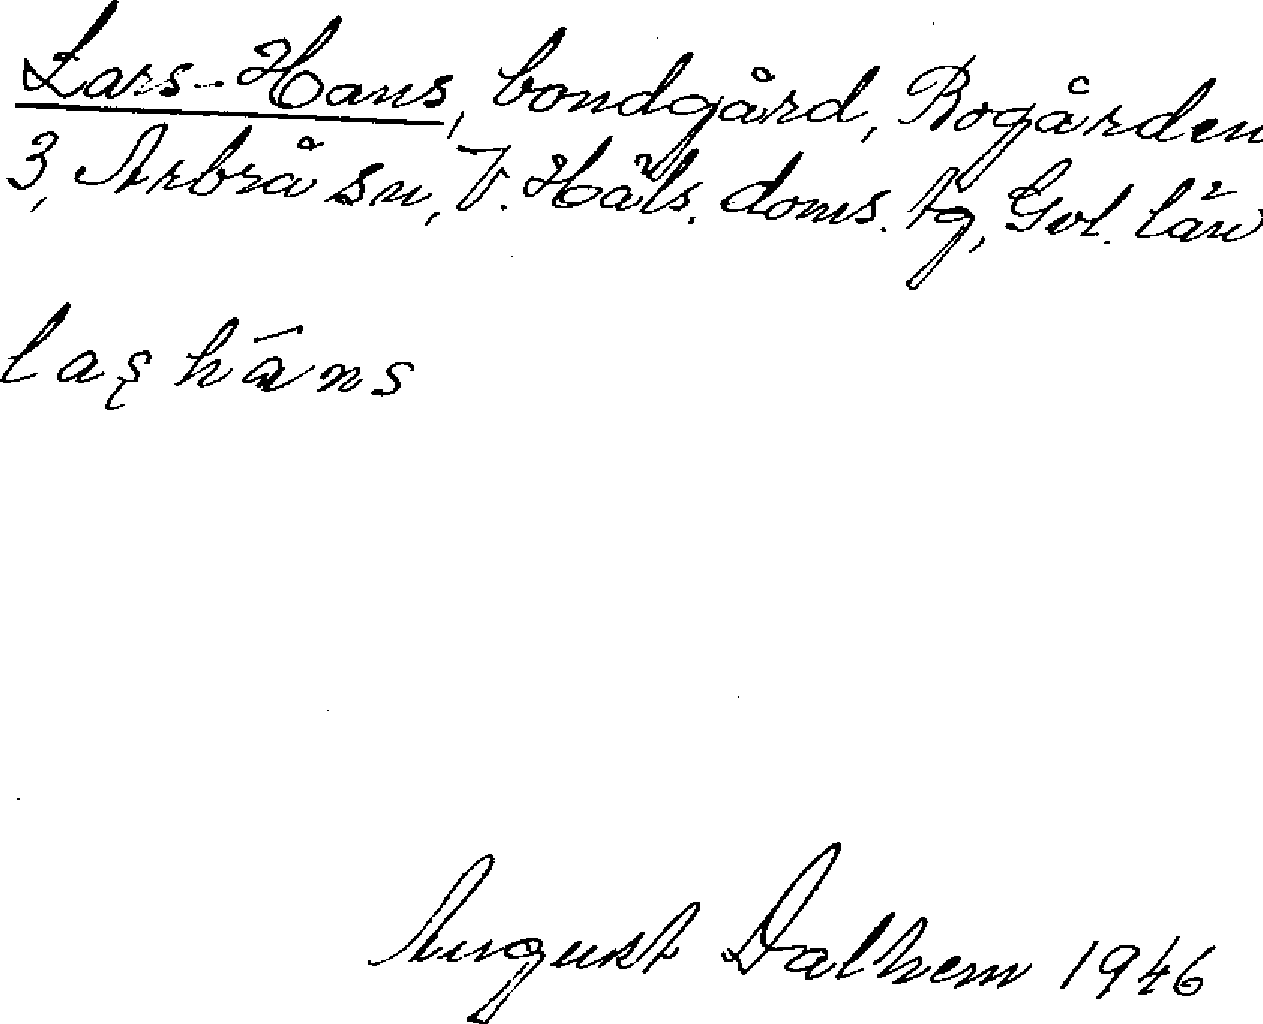 Lars-Hans, bondgård, Bogården
3, Arbrå sn, V. Häls. doms. tg, Gvl. län
laş hāns
August Dalhem 1946